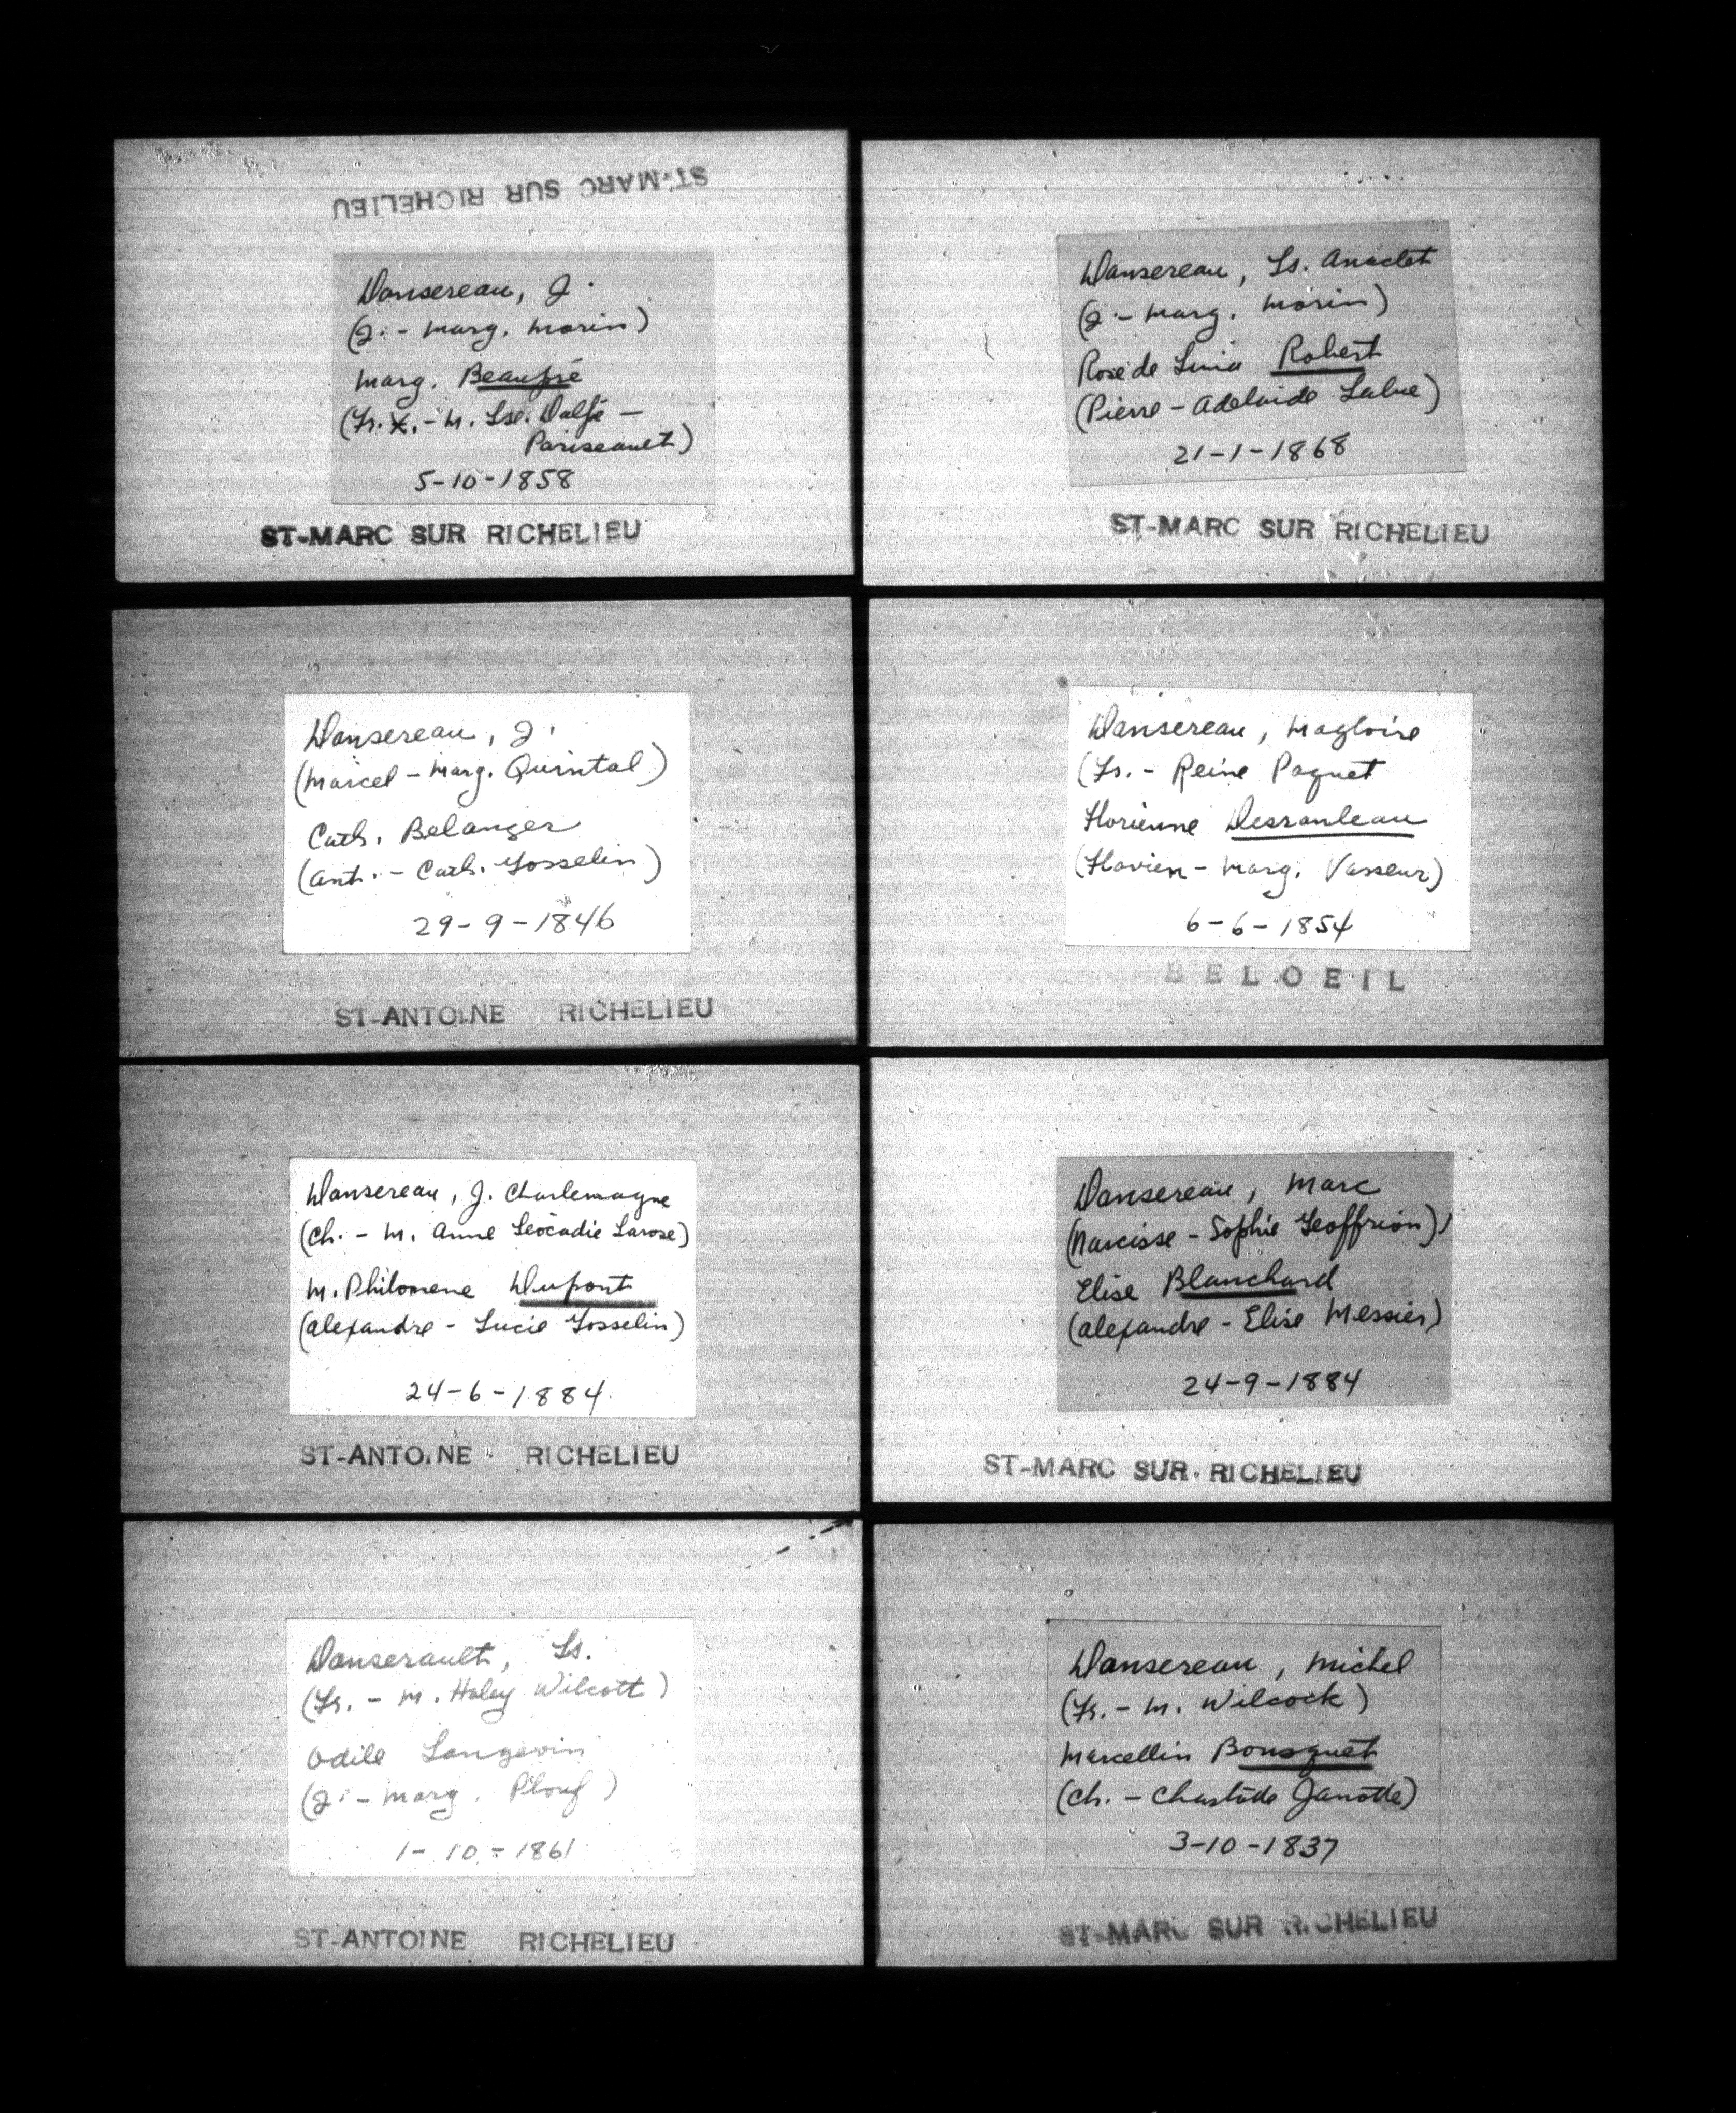 ST-MARC SUR RICHELIEU
Dansereau, J.
(J. - Marg. Morin)
Marg. Beaupré
(Fr. X. - M. Lse. Dalpé -
Pariseault)
5-10-1858
ST-MARC SUR RICHELIEU
Dansereau, Ls. Anaclet
(J. - Marg. Morin)
Rose de Lima Robert
(Pierre - Adelaide Lalue)
21-1-1868
ST-MARC SUR RICHELIEU
Dansereau, J.
(Marcel - Marg. Quintal)
Cath. Belanger
(Ant. - Cath. Gosselin)
29-9-1846
ST-ANTOINE RICHELIEU
Dansereau, Magloire
(Fs. - Reine Paquet
Florienne Desranleau
(Flavien - Marg. Vasseur)
6-6-1854
BELOEIL
Dansereau, J. Charlemagne
(Ch. - M. Anne Léocadie Larose)
M. Philomene Dupont
(Alexandre - Lucie Gosselin)
24-6-1884.
ST-ANTOINE RICHELIEU
Dansereau, Marc
(Narcisse - Sophie Geoffrion)
Elise Blanchard
(Alexandre - Elise Messier)
24-9-1884
ST-MARC SUR RICHELIEU
Dansereault, Ls.
(Fr. - M. Haley Wilcott)
Odile Langevin
(J. - Marg. Plouf)
1-10-1861
ST-ANTOINE RICHELIEU
Dansereau, Michel
(Fr. - M. Wilcock)
Marcellin Bousquet
(Ch. - Charlotte Janotte)
3-10-1837
ST-MARC SUR RICHELIEU